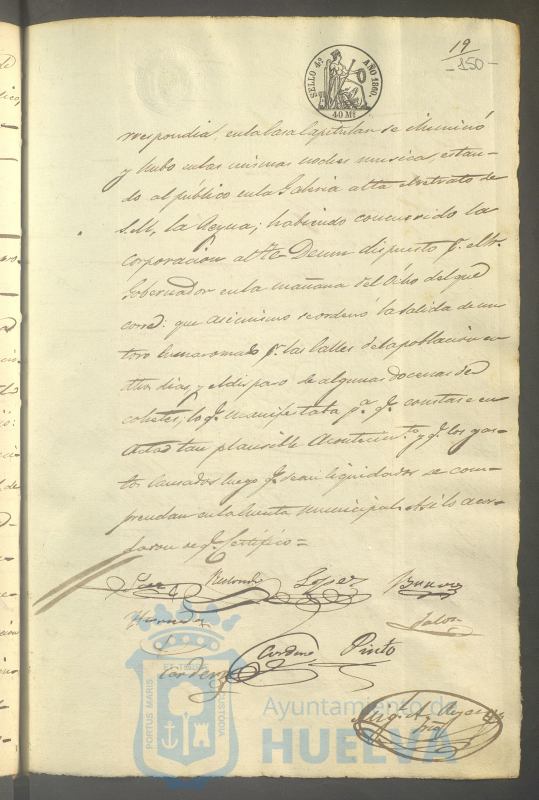 19
-150-
SELLO 4º AÑO 1860.
40 Ms
rrespondia, en la Casa Capitular se iluminó
y hubo en las mismas noches musica, estan-
do al público en la Galeria alta el retrato de
S.M. la Reyna; habiendo concurrido la
Corporacion al Te Deum dispuesto p.r el Sr.
Gobernador en la mañana del Ocho del que
corre: que asimismo se ordenó la salida de un
toro enmaromado p.r las Calles de la poblacion en
dhos dias, y el disparo de algunas docenas de
cohetes; lo q.e manifestaba p.a q.e constase en
Acta tan plausible Acontecim.to y q.e los gas-
tos causados luego q.e sean liquidados se com-
prendan en la Cuenta municipal. Asi lo acor-
daron de q.e Certifico =
Redondo
Lopez
Cordero
Pinto
PORTUS MARIS ET TERRE CUSTODIA
Ayuntamiento de
HUELVA